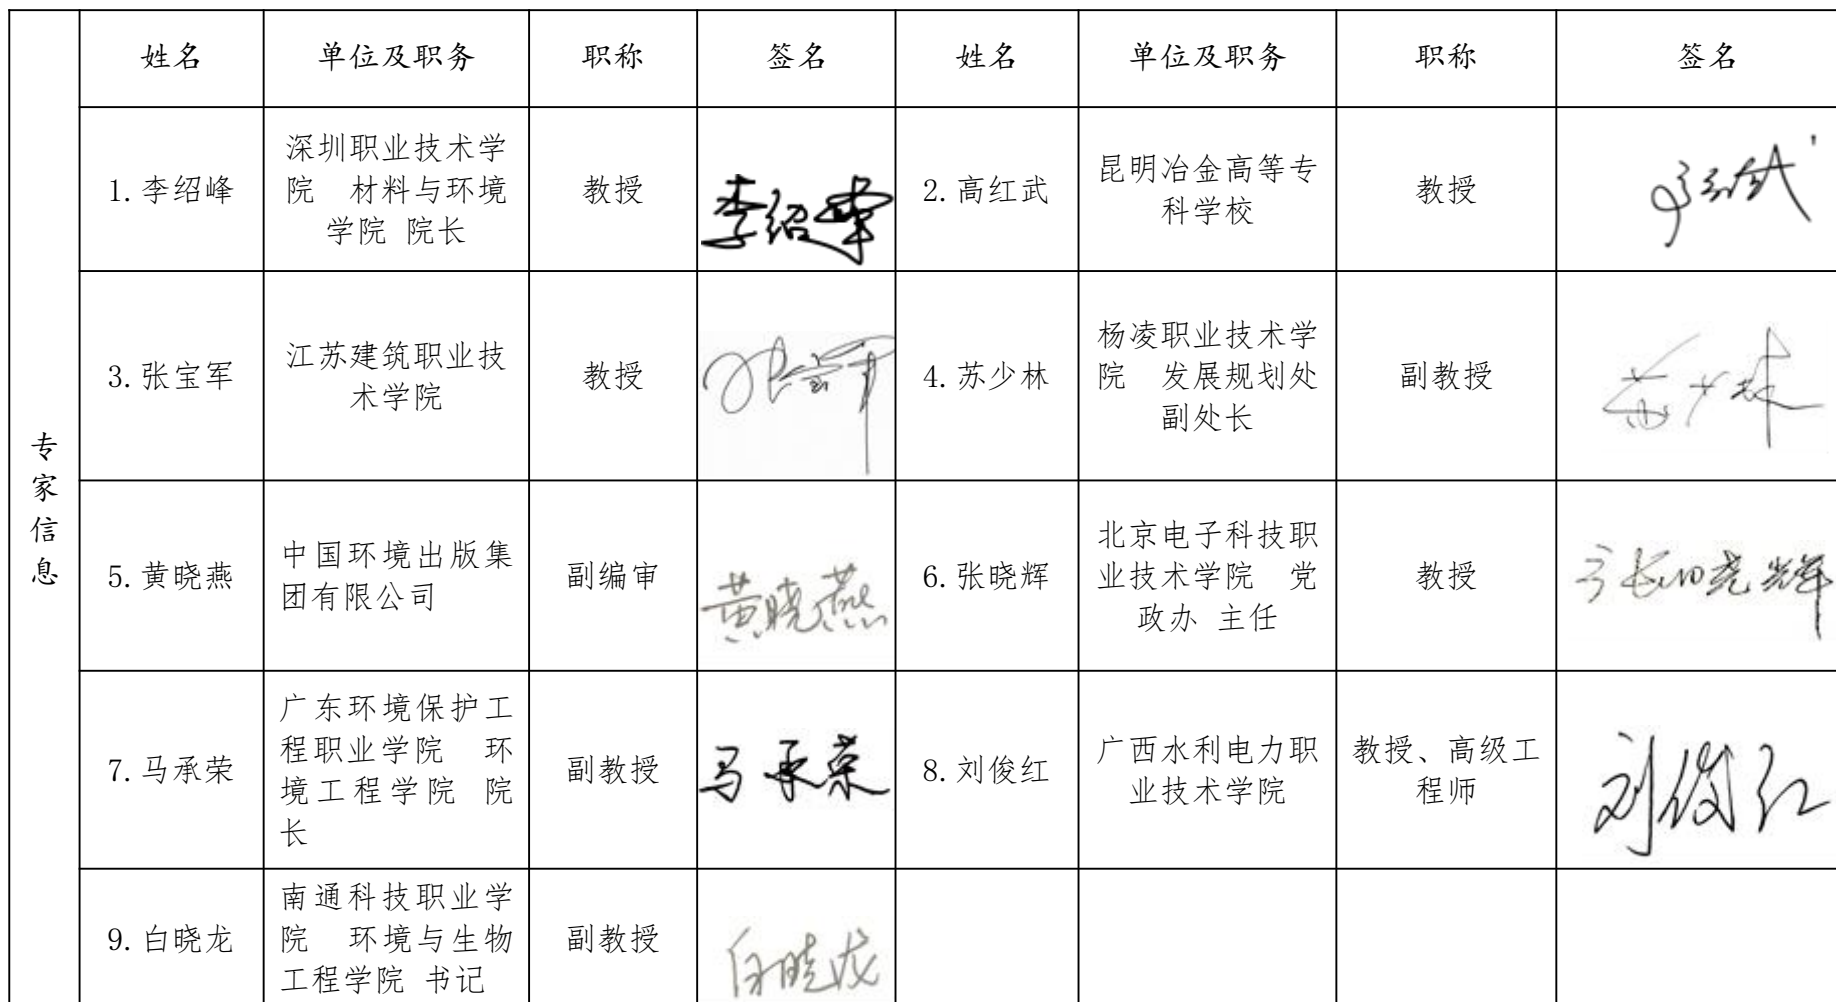 姓名 单位及职务 职称 签名 姓名 单位及职务 职称 签名
专家信息
1.李绍峰
深圳职业技术学
院 材料与环境
学院 院长
教授
李绍峰
2.高红武
昆明冶金高等专
科学校
教授
高红武
3.张宝军
江苏建筑职业技
术学院
教授
张宝军
4.苏少林
杨凌职业技术学
院 发展规划处
副处长
副教授
苏少林
5.黄晓燕
中国环境出版集
团有限公司
副编审
黄晓燕
6.张晓辉
北京电子科技职
业技术学院 党
政办 主任
教授
张晓辉
7.马承荣
广东环境保护工
程职业学院 环
境工程学院 院
长
副教授
马承荣
8.刘俊红
广西水利电力职
业技术学院
教授、高级工
程师
刘俊红
9.白晓龙
南通科技职业学
院 环境与生物
工程学院 书记
副教授
白晓龙